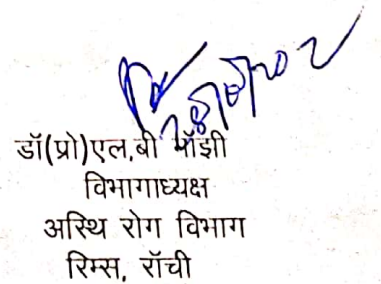 डॉ(प्रो)एल.बी मॉंझी
विभागाध्यक्ष
अस्थि रोग विभाग
रिम्स, रॉची